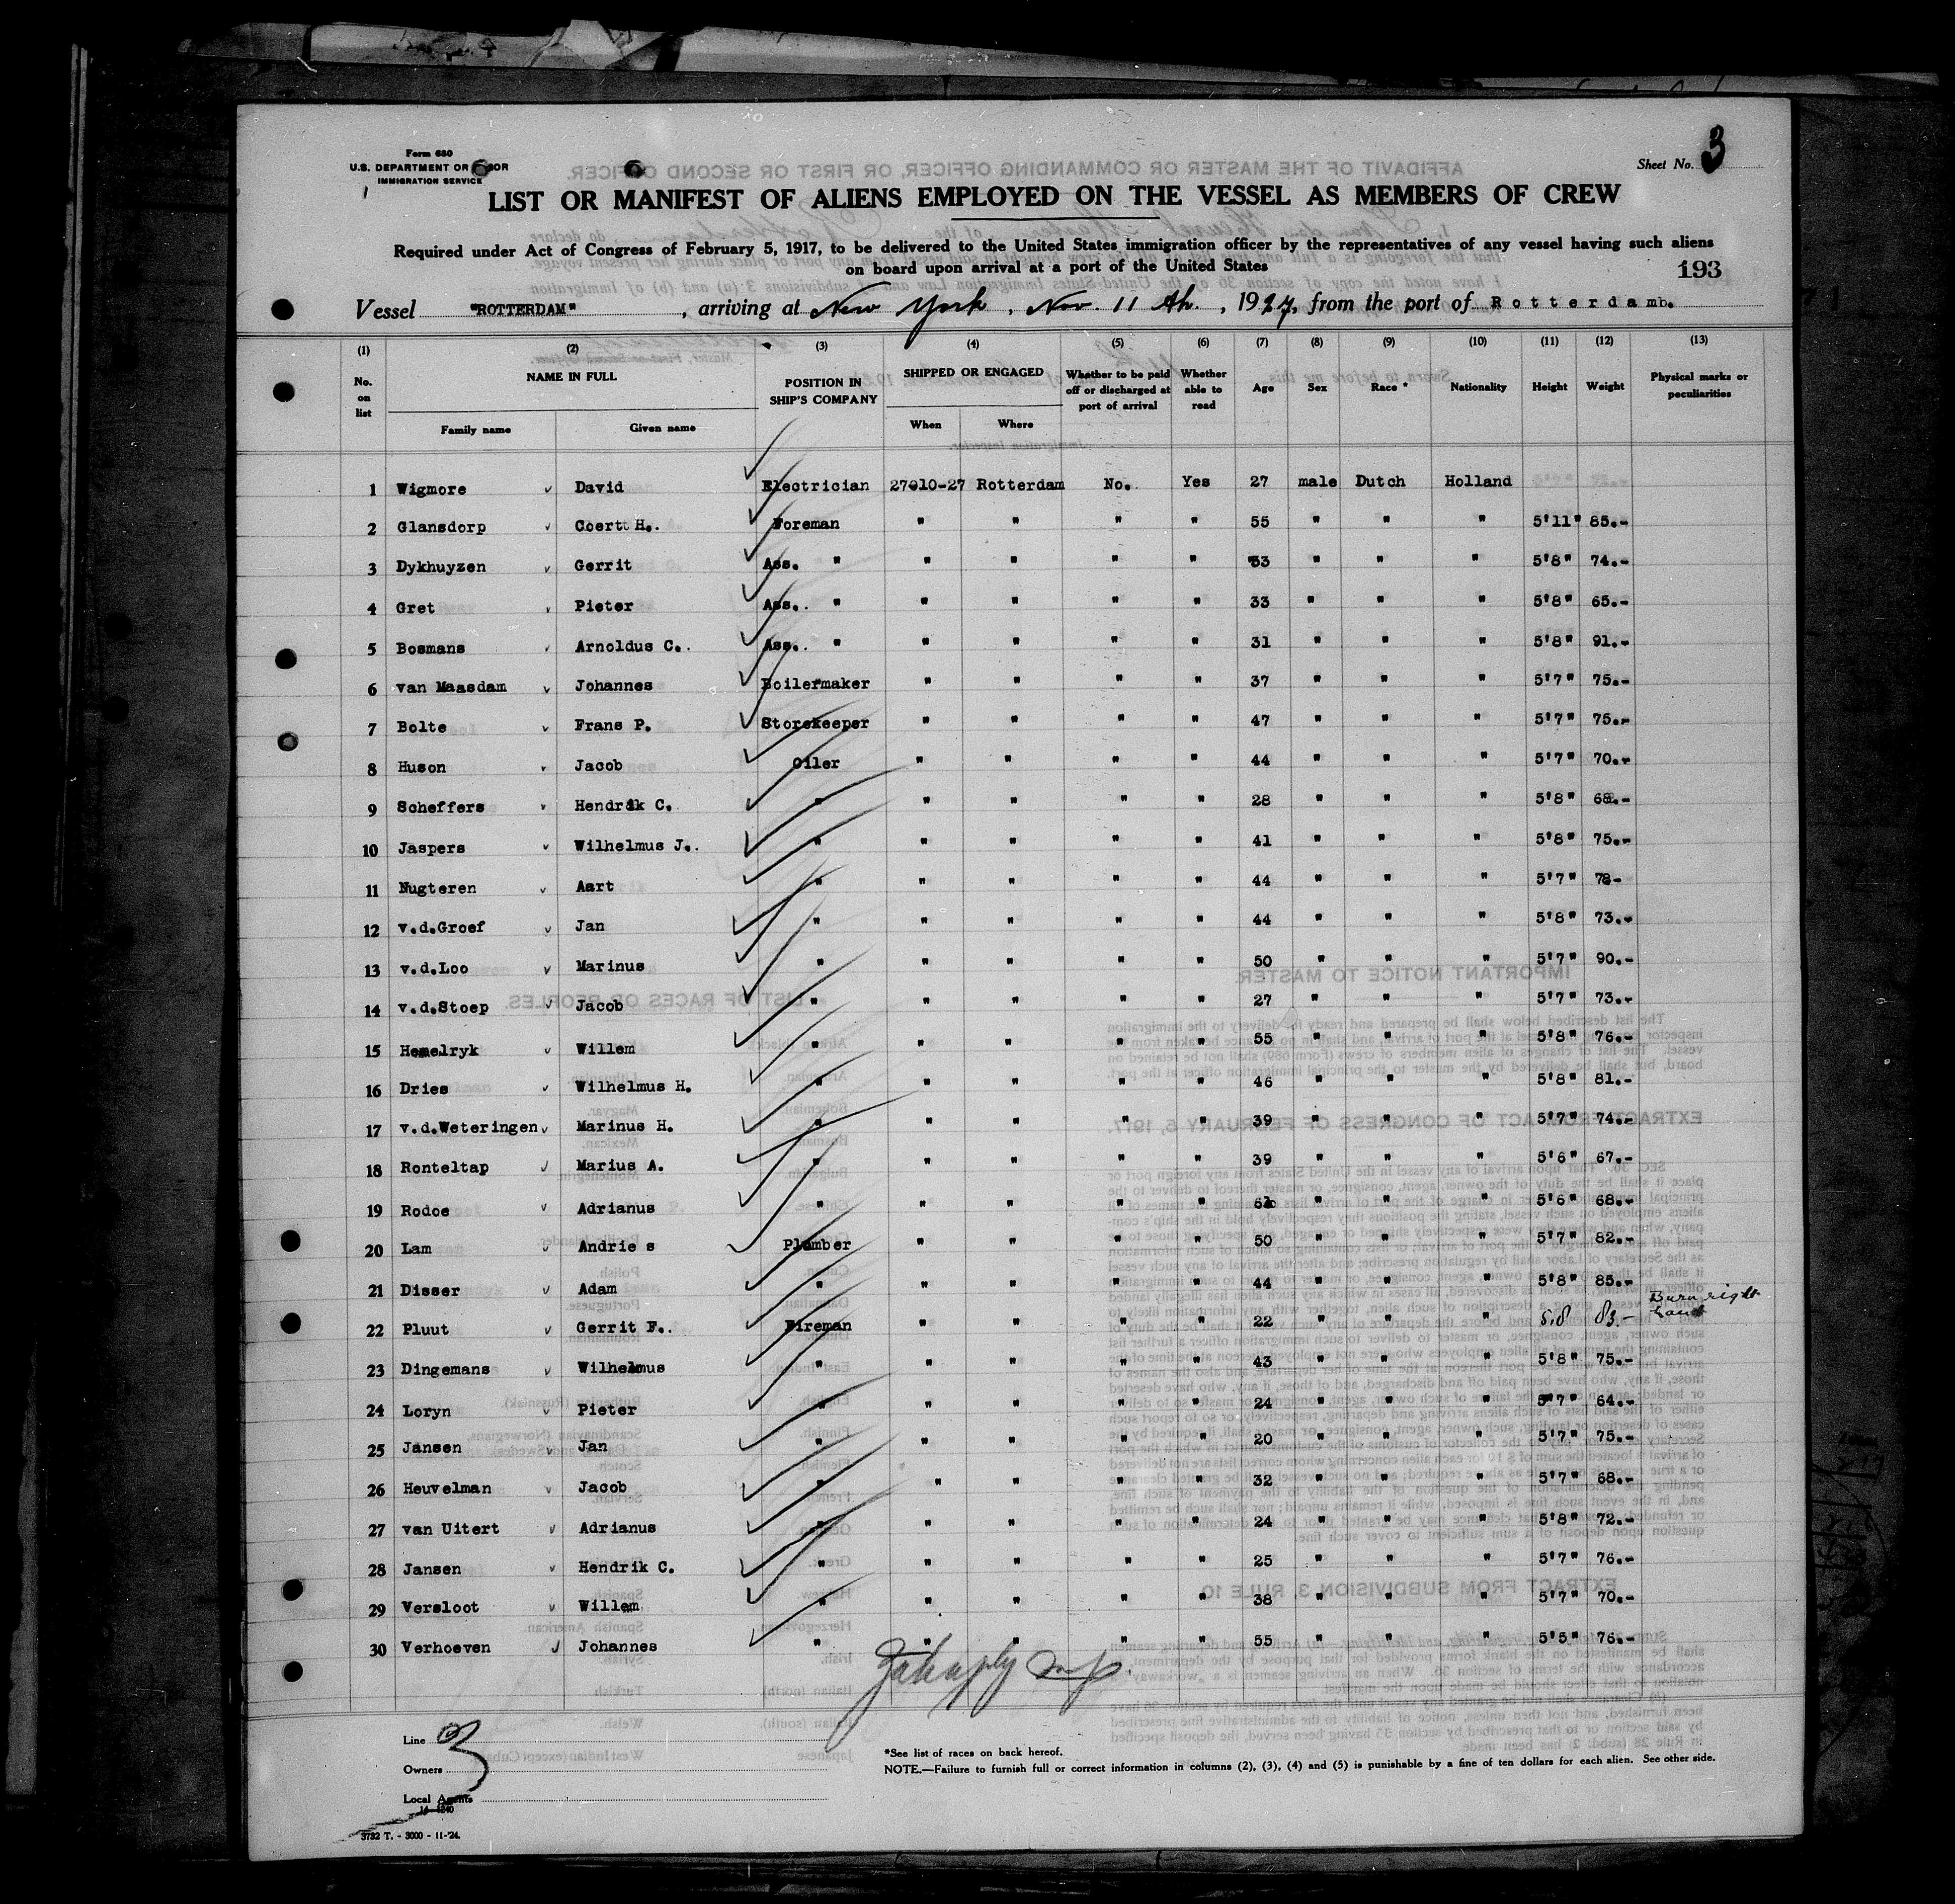 Form 680
U.S. DEPARTMENT OF LABOR
IMMIGRATION SERVICE
Sheet No. 3
LIST OR MANIFEST OF ALIENS EMPLOYED ON THE VESSEL AS MEMBERS OF CREW
Required under Act of Congress of February 5, 1917, to be delivered to the United States immigration officer by the representatives of any vessel having such aliens
on board upon arrival at a port of the United States
193
Vessel "ROTTERDAM", arriving at New York, Nov. 11 th, 1927, from the port of Rotterdam.
(1) (2) (3) (4) (5) (6) (7) (8) (9) (10) (11) (12) (13)
No. on list NAME IN FULL POSITION IN SHIP'S COMPANY SHIPPED OR ENGAGED Whether to be paid off or discharged at port of arrival Whether able to read Age Sex Race * Nationality Height Weight Physical marks or peculiarities
Family name Given name When Where
1 Wigmore David Electrician 27-10-27 Rotterdam No. Yes 27 male Dutch Holland
2 Glansdorp Coert H. Foreman " " " " 55 " " " 5'11" 85.-
3 Dykhuyzen Gerrit Ass. " " " " " 33 " " " 5'8" 74.-
4 Gret Pieter Ass. " " " " " 33 " " " 5'8" 65.-
5 Bosmans Arnoldus C. Ass. " " " " " 31 " " " 5'8" 91.-
6 van Maasdam Johannes Boilermaker " " " " 37 " " " 5'7" 75.-
7 Bolte Frans P. Storekeeper " " " " 47 " " " 5'7" 75.-
8 Huson Jacob Oiler " " " " 44 " " " 5'7" 70.-
9 Scheffers Hendrik C. " " " " " 28 " " " 5'8" 68.-
10 Jaspers Wilhelmus J. " " " " " 41 " " " 5'8" 75.-
11 Nugteren Aart " " " " " 44 " " " 5'7" 78-
12 v.d.Groef Jan " " " " " 44 " " " 5'8" 73.-
13 v.d.Loo Marinus " " " " " 50 " " " 5'7" 90.-
14 v.d.Stoep Jacob " " " " " 27 " " " 5'7" 73.-
15 Hemelryk Willem " " " " " 55 " " " 5'8" 76.-
16 Dries Wilhelmus H. " " " " " 46 " " " 5'8" 81.-
17 v.d.Weteringen Marinus H. " " " " " 39 " " " 5'7" 74.-
18 Ronteltap Marius A. " " " " " 39 " " " 5'6" 67.-
19 Rodoe Adrianus " " " " " " " " 5'6" 68.-
20 Lam Andrie s Plumber " " " " 50 " " " 5'7" 82.-
21 Disser Adam " " " " " 44 " " " 5'8" 85.-
22 Pluut Gerrit F. Fireman " " " " 22 " " " 5,8 83.- Burn right hand
23 Dingemans Wilhelmus " " " " " 43 " " " 5'8" 75.-
24 Loryn Pieter " " " " " 24 " " " 5'7" 64.-
25 Jansen Jan " " " " " 20 " " " 5'7" 75.-
26 Heuvelman Jacob " " " " " 32 " " " 5'7" 68.-
27 van Uitert Adrianus " " " " " 24 " " " 5'8" 72.-
28 Jansen Hendrik C. " " " " " 25 " " " 5'7" 76.-
29 Versloot Willem " " " " " 38 " " " 5'7" 70.-
30 Verhoeven Johannes " " " " " 55 " " " 5'5" 76.-
Line
Owners 3
Local Agents
14-1240
3732 T. - 3000 - 11-'24.
*See list of races on back hereof.
NOTE.—Failure to furnish full or correct information in columns (2), (3), (4) and (5) is punishable by a fine of ten dollars for each alien. See other side.